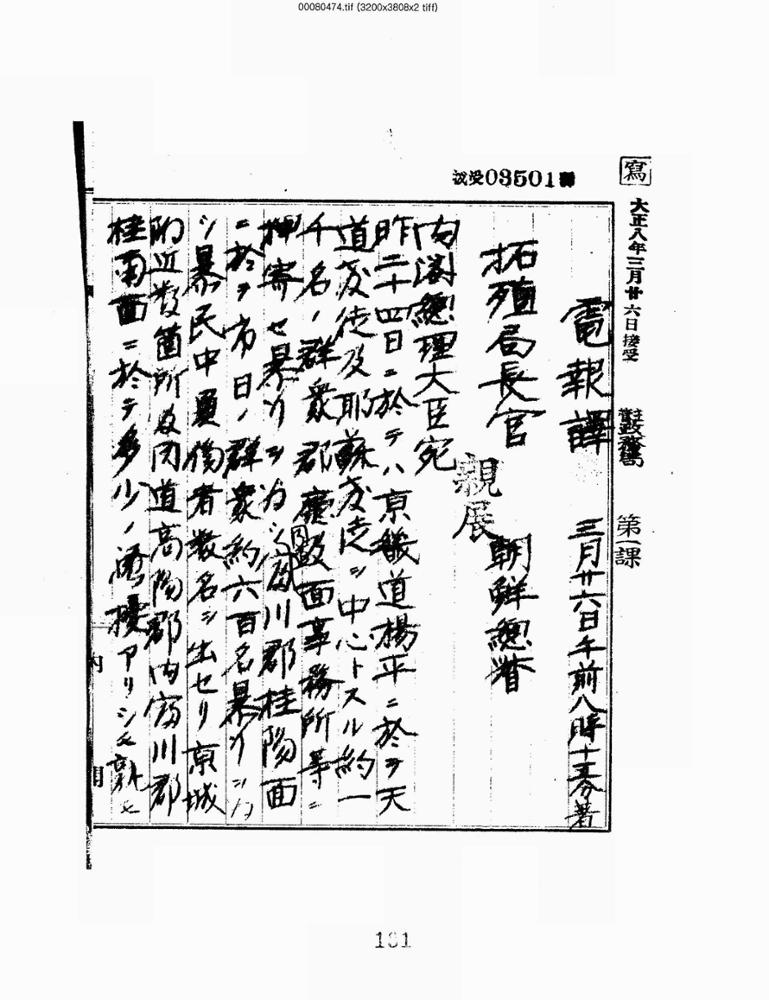 00080474.tif (3200x3808x2 tiff)
寫
大正八年三月廿六日接受
第一課
受03501號
電報譯
三月廿六日午前八時十五分著
拓殖局長官
朝鮮總督
親展
内閣總理大臣宛
昨二十四日ニ於テハ京畿道楊平ニ於テ天
道教徒及耶蘇教徒ヲ中心トスル約一
千名ノ群衆郡廳及面事務所等ニ
押寄セ暴行ヲ為シ富川郡桂陽面
ニ於テ市日ノ群衆約六百名暴行シ
シ暴民中負傷者数名ヲ出セリ京城
附近数箇所及同道高陽郡内富川郡
桂南面ニ於テ多少ノ騒擾アリシモ孰モ
内
用
181